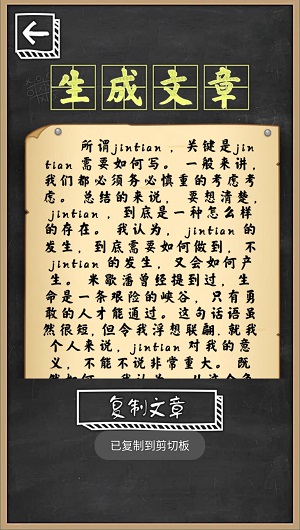 生成文章
所谓jintian，关键是jin
tian 需要如何写。一般来讲，
我们都必须务必慎重的考虑考
虑。总结的来说，要想清楚，
jintian，到底是一种怎么样
的存在。我认为，jintian 的
发生，到底需要如何做到，不
jintian 的发生，又会如何产
生。米歇潘曾经提到过，生
命是一条艰险的峡谷，只有勇
敢的人才能通过。这句话语虽
然很短，但令我浮想联翩.就我
个人来说，jintian 对我的意
义，不能不说非常重大。既
复制文章
已复制到剪切板